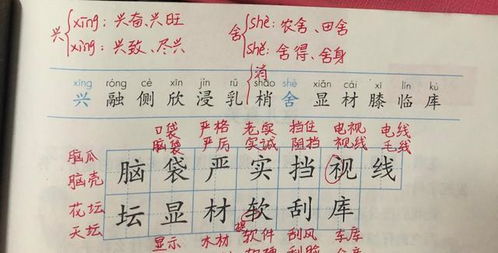 兴 xīng：兴奋、兴旺 舍 shè：农舍、田舍
xìng：兴致、尽兴 shě：舍得、舍身
消
xīng róng cè xīn jìn rǔ shāo shè xiǎn cái xī lín kù
兴 融 侧 欣 浸 乳 梢 舍 显 材 膝 临 库
口袋 严格 老实 挡住 电视 电线
脑袋 严厉 实诚 阻挡 视线 毛线
脑瓜
脑壳
脑 袋 严 实 挡 视 线
花坛
天坛
坛 显 材 软 刮 库
显示 木材 软件 刮风 车库